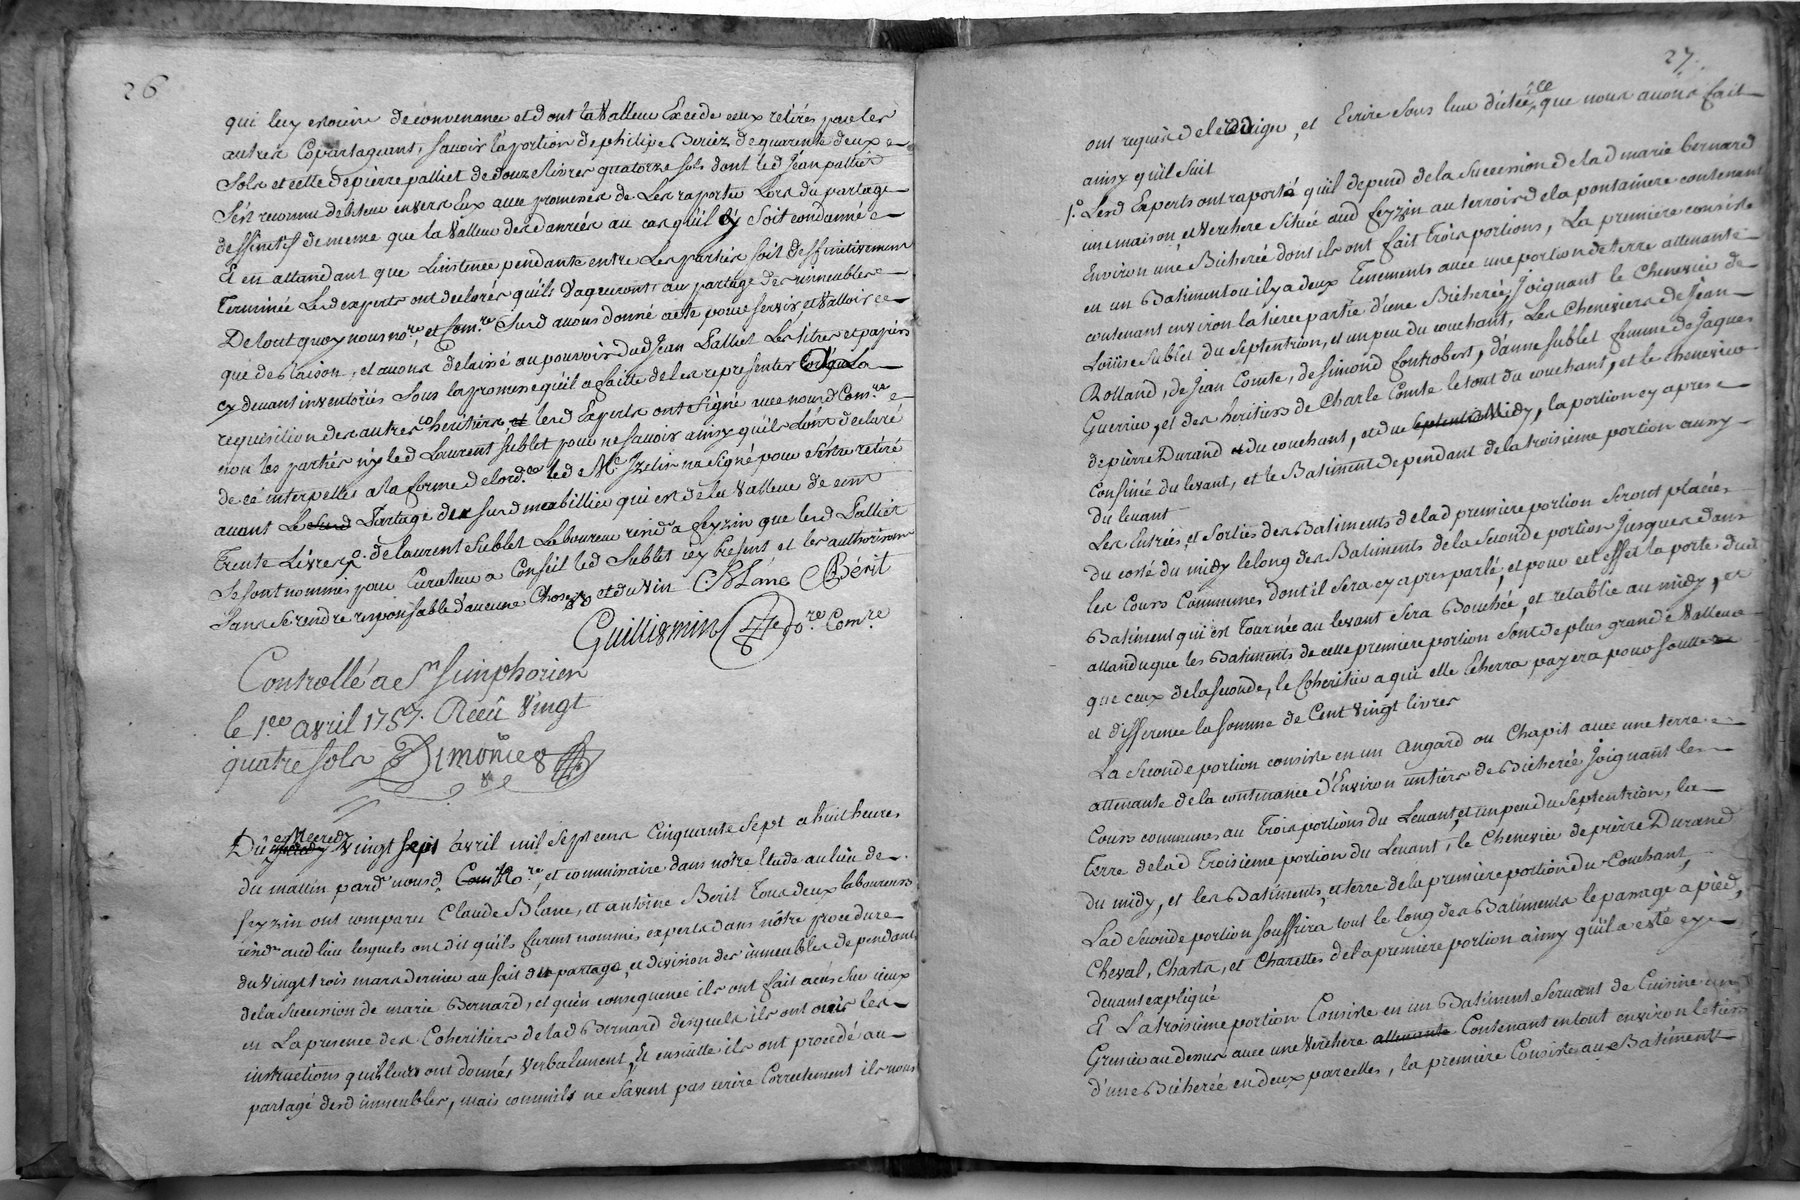 26
qui luy etoient de convenance et dont la Valleur Excede ceux retirés par les
autres Copartageant, Savoir la portion de philipe Beriez de quarente deux
Sols et celle de pierre palliet de douze livres quatorze sols dont led Jean palliet
S'est reconnu debiteur envers Eux avec promesses de Les raporter Lors du partage
deffinitif de meme que la Valleur des danrées au cas qu'il y Soit condanné
Et en attandant que Linstence pendante entre Les parties soit deffinitivement
Terminée Lesd experts ont declarés qu'ils Vaqueront au partage des immeubles
De tout quoy nous no.re, et Com.re Susd avons donné acte pour servir, et Valloir ce
que de Raison, et avons delaissé au pouvoir dud Jean Palliet Les titres et papiers
cy devant inventoriés Sous la promesse qu'il a faitte de les representer
requisition des autres coheritiers, et lesd Experts ont signé avec nousd Com.re
non les parties ny led Laurent Sublet pour ne savoir ainsy qu'ils L'ont declaré
de ce interpellés a la forme de lord.ce led M.e Izelin n'a signé pour s'être retiré
avant Le Susd Partage des susd meubillier qui est de la Valleur de cent
Trente Livres, de laurent Sublet Laboureur resid.t a feyzin que lesd Palliet
Se sont nommés pour Curateur a Conseil led Sublet icy Present et les authorisant
Sans Se rendre responsable d'aucune Choses et du vin Blanc Bérit
Guillermin No.re Com.re
Controllé a S.t Simphorien
le 1.er avril 1757. Reçu Vingt
quatre sols Dimonier
Du Mecredy Vingt Sept avril mil Sept cens Cinquante Sept a huit heures
du mattin pard nousd No.re, et commissaire dans notre Etude au lieu de
feyzin ont comparu Claude Blanc, et antoine Berit Tous deux laboureurs
resid.ts aud lieu lesquels ont dit qu'ils furent nommés experts dans nôtre procedure
du Vingt trois mars dernier au fait du partage, et division des immeubles dependants
de la Succession de marie Bernard, et qu'en consequence ils ont fait accès sur iceux
en La presence des Coheritiers de lad Bernard desquels ils ont ouis les
instructions qu'ils leurs ont donnés Verbalement, Et ensuitte ils ont procedé au
partagé desd immeubles, mais comm'ils ne Savent pas ecrire Correctement ils nous
27
ont requis de le rediger, et Ecrire sous leur dictée, ce que nous avons fait
ainsy qu'il suit
1.° Lesd Experts ont raporté qu'il depend de la Succession de lad marie bernard
une maison, et Verchere Située aud feyzin au terroir de la pontainiere contenant
Environ une Bicherée dont ils ont fait Trois portions, La premiere consiste
en un Batiment ou il y a deux Tenements avec une portion de terre attenante
contenant environ la tierce partie d'une Bicherée, Joignant le Chenevier de
Loüise Sublet du Septentrion, et un peu du couchant, Les Cheneviers de Jean
Rolland, de Jean Comte, de Simond fontrobert, d'anne Sublet femme de Jaques
Guerrier, et des heritiers de Charle Comte le tout du couchant, et le chenevier
de pierre Durand du couchant, et du Midy, la portion cy apres
Confinée du levant, et le Batiment dependant de la troisieme portion aussy
du levant
Les Entrées, et Sorties des Batiments de lad premiere portion Seront placées
du costé du midy le long des Batiments de la Seconde portion Jusques dans
les Cours Communes dont il Sera cy apres parlé, et pour cet effet la porte dud
Batiment qui est Tournée au levant Sera Bouchée, et retablie au midy, et
attandu que les Batiments de cette premiere portion Sont de plus grande Valleur
que ceux de la Seconde, le Coheritier a qui elle Echerra payera pour soutte
et difference la Somme de Cent Vingt livres
La Seconde portion consiste en un Angard ou Chapit avec une terre
attenante de la contenance d'Environ un tiers de Bicherée Joignant les
Cours communes au Trois portions du Levant, et un peu du Septentrion, la
Terre de lad Troisieme portion du Levant, le Chenevier de pierre Durand
du midy, et les Batiments, et terre de la premiere portion du Couchant,
Lad Seconde portion Souffrira tout le long des Batiments le passage a pied,
Cheval, Chars, et Charettes de la premiere portion ainsy qu'il a esté cy
devant expliqué
Et La troisieme portion Consiste en un Batiment Servant de Cuisine un
Grenier au dessus avec une Verchere attenante Contenant en tout environ le tiers
d'une Bicherée en deux parcelles, la premiere Consiste aux Batiments